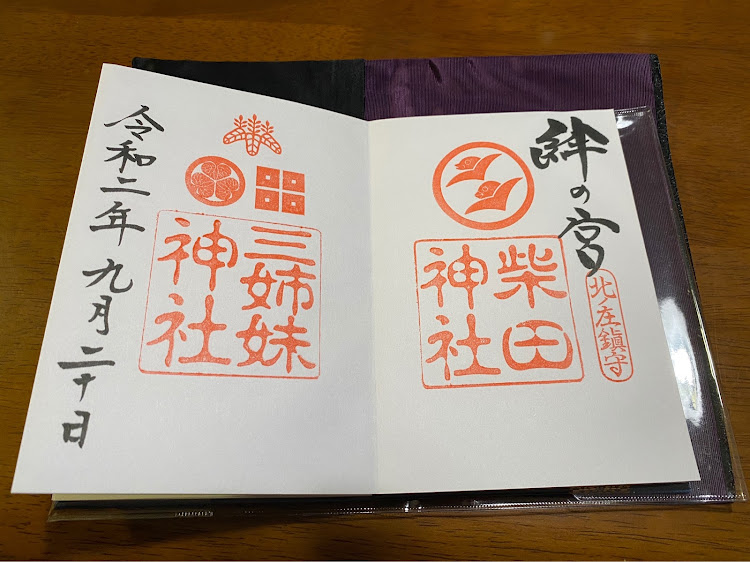 絆の宮
北ノ庄鎮守
柴田
神社
三姉妹
神社
令和二年九月二十日